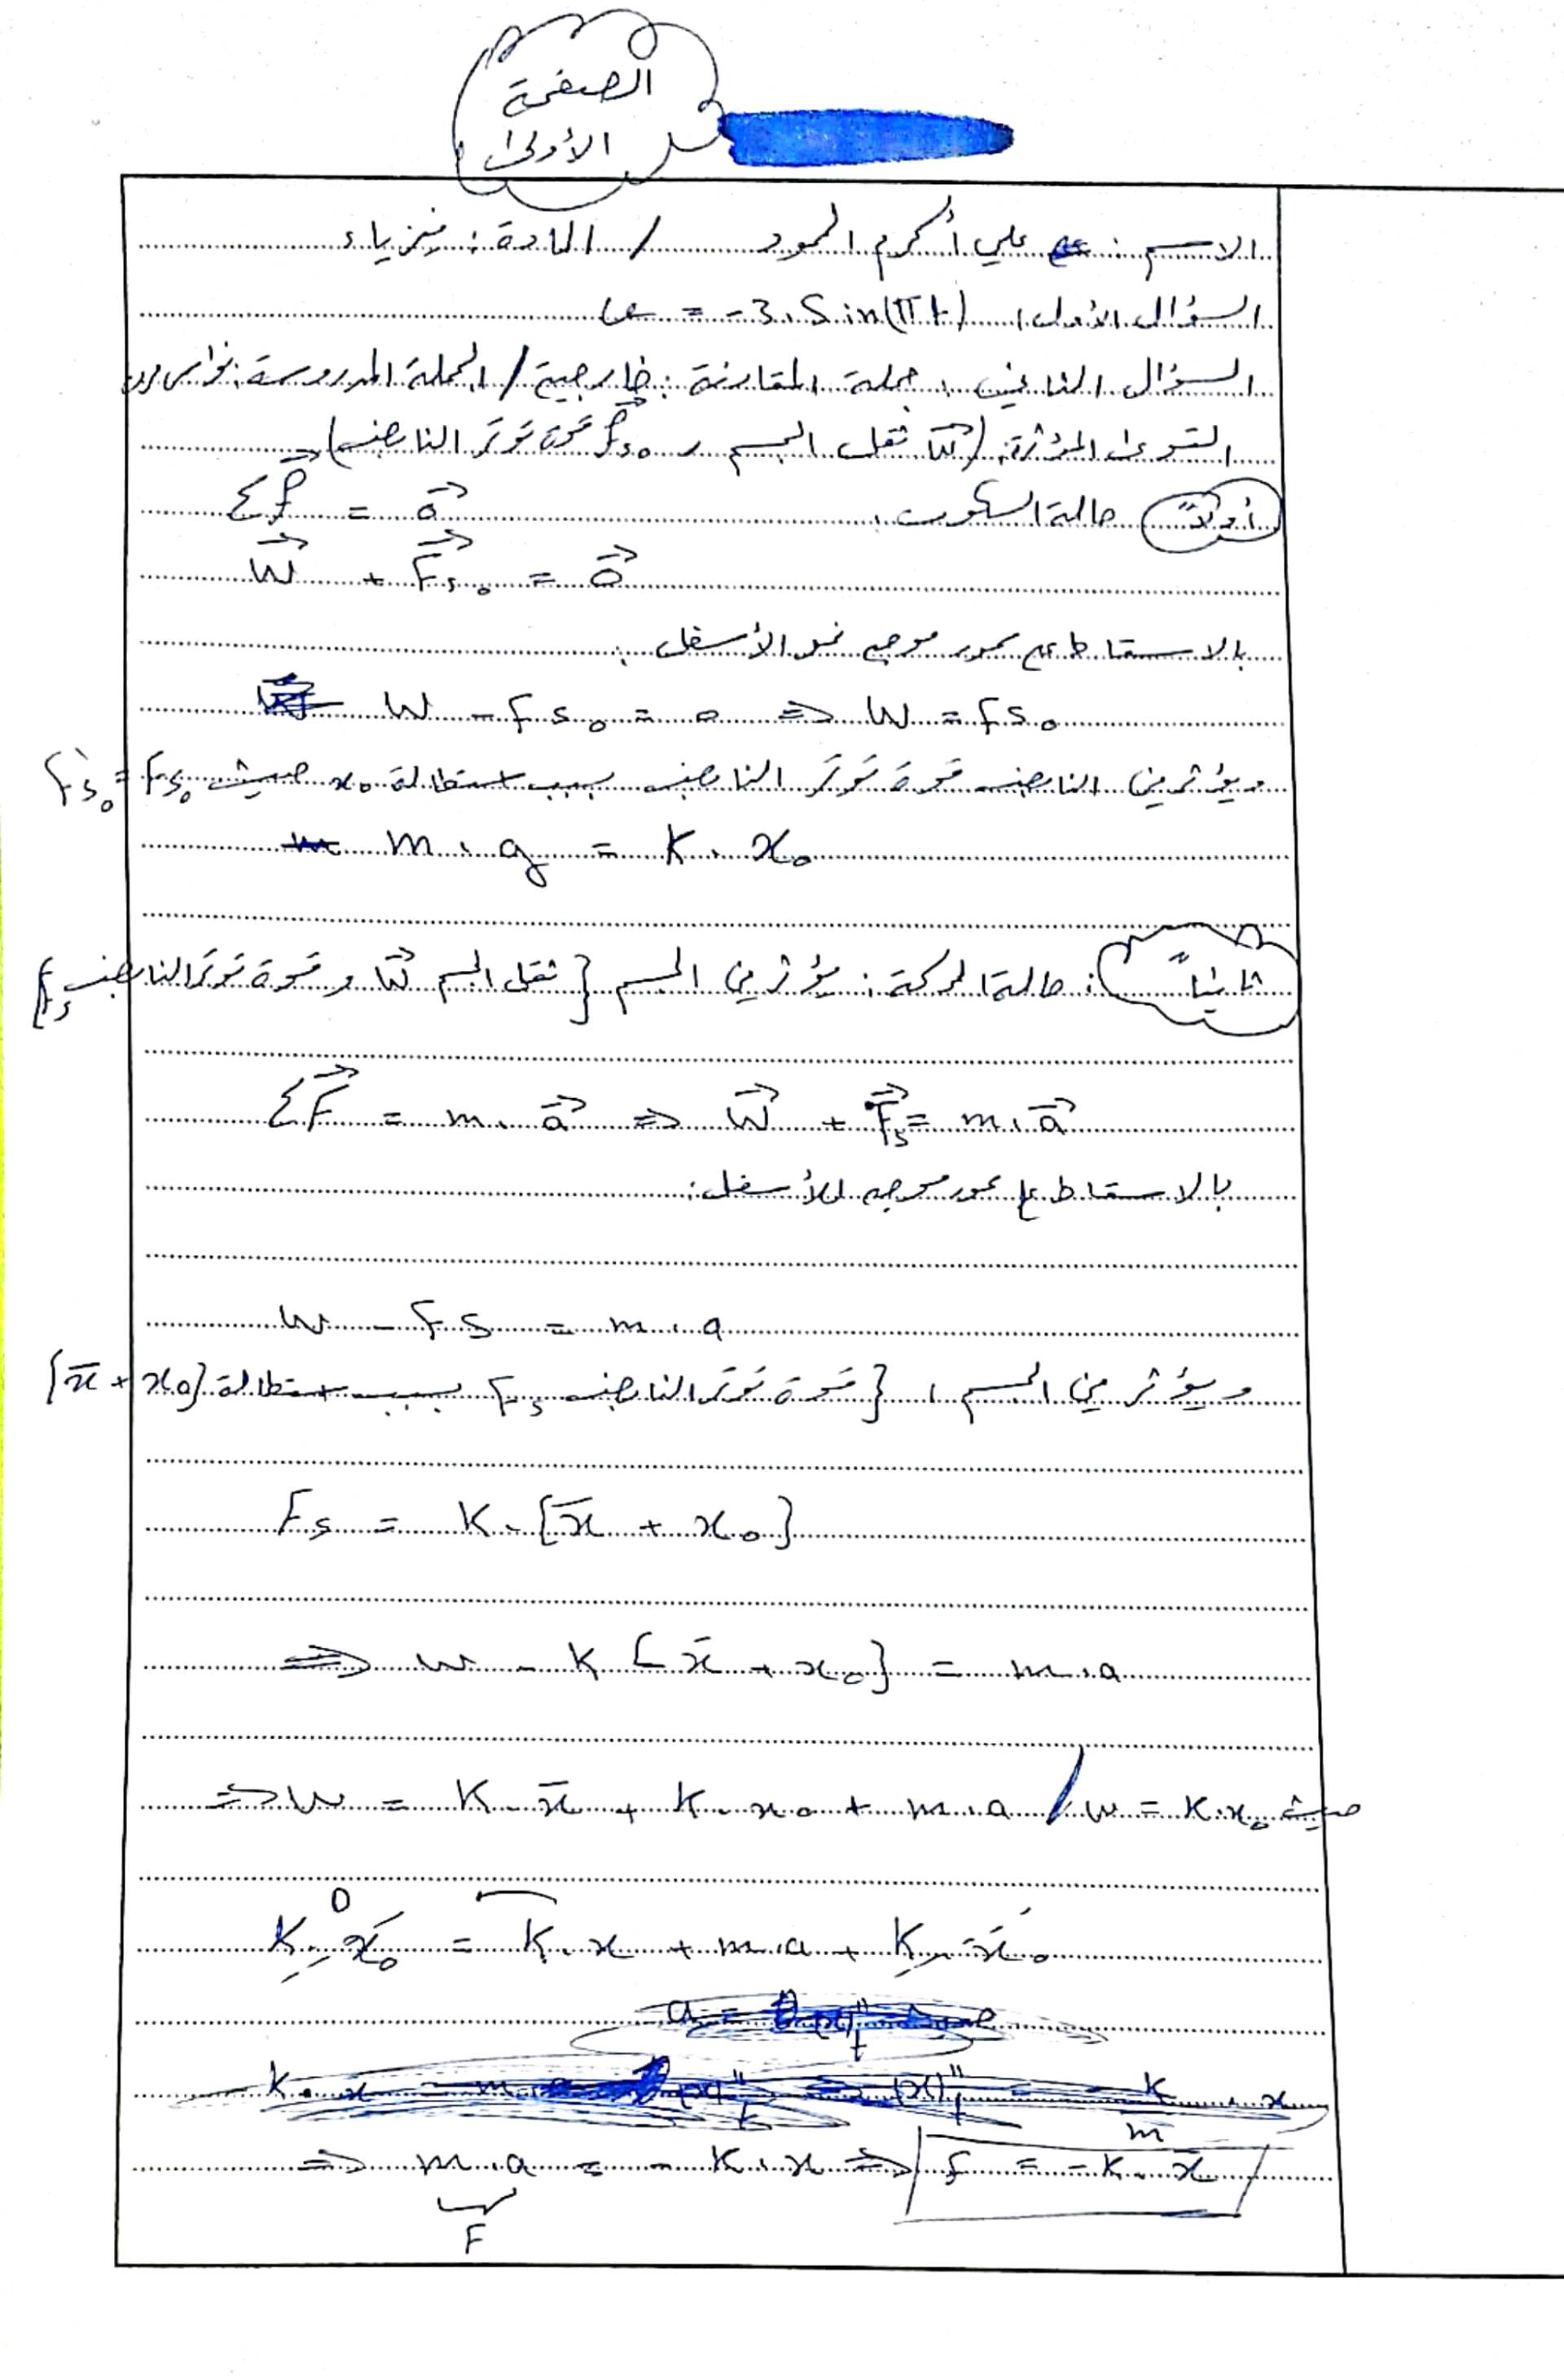 الصفحة
الأولى
الاسم: علي أكرم الحمود / المادة: فيزياء
السؤال الأول: = -3. Sin(π t)
السؤال الثاني: جملة المقارنة: خارجية / الجملة المدروسة: نواس مرن
القوى المؤثرة: (W ثقل الجسم و Fs₀ قوة توتر النابض)
أولاً حالة السكون: ΣF = 0
W + Fs₀ = 0
بالاسقاط على محور موجه نحو الأسفل:
W - Fs₀ = 0 ⇒ W = Fs₀
ويؤثر في النابض قوة توتر النابض بسبب استطالة x₀ حيث F's₀ = Fs₀
m . g = K . x₀
ثانياً: حالة الحركة: يؤثر في الجسم {ثقل الجسم W وقوة توتر النابض Fs}
ΣF = m . a ⇒ W + Fs = m . a
بالاسقاط على محور موجه للأسفل:
W - Fs = m . a
ويؤثر في الجسم: {قوة توتر النابض Fs بسبب استطالة {x̄ + x₀}
Fs = K . {x̄ + x₀}
⇒ W - K [x̄ + x₀} = m . a
⇒ W = K . x̄ + K . x₀ + m . a / W = K . x₀ حيث
K . x₀ = K . x + m . a + K . x₀
⇒ m . a = - K . x ⇒ F = - K . x̄
F